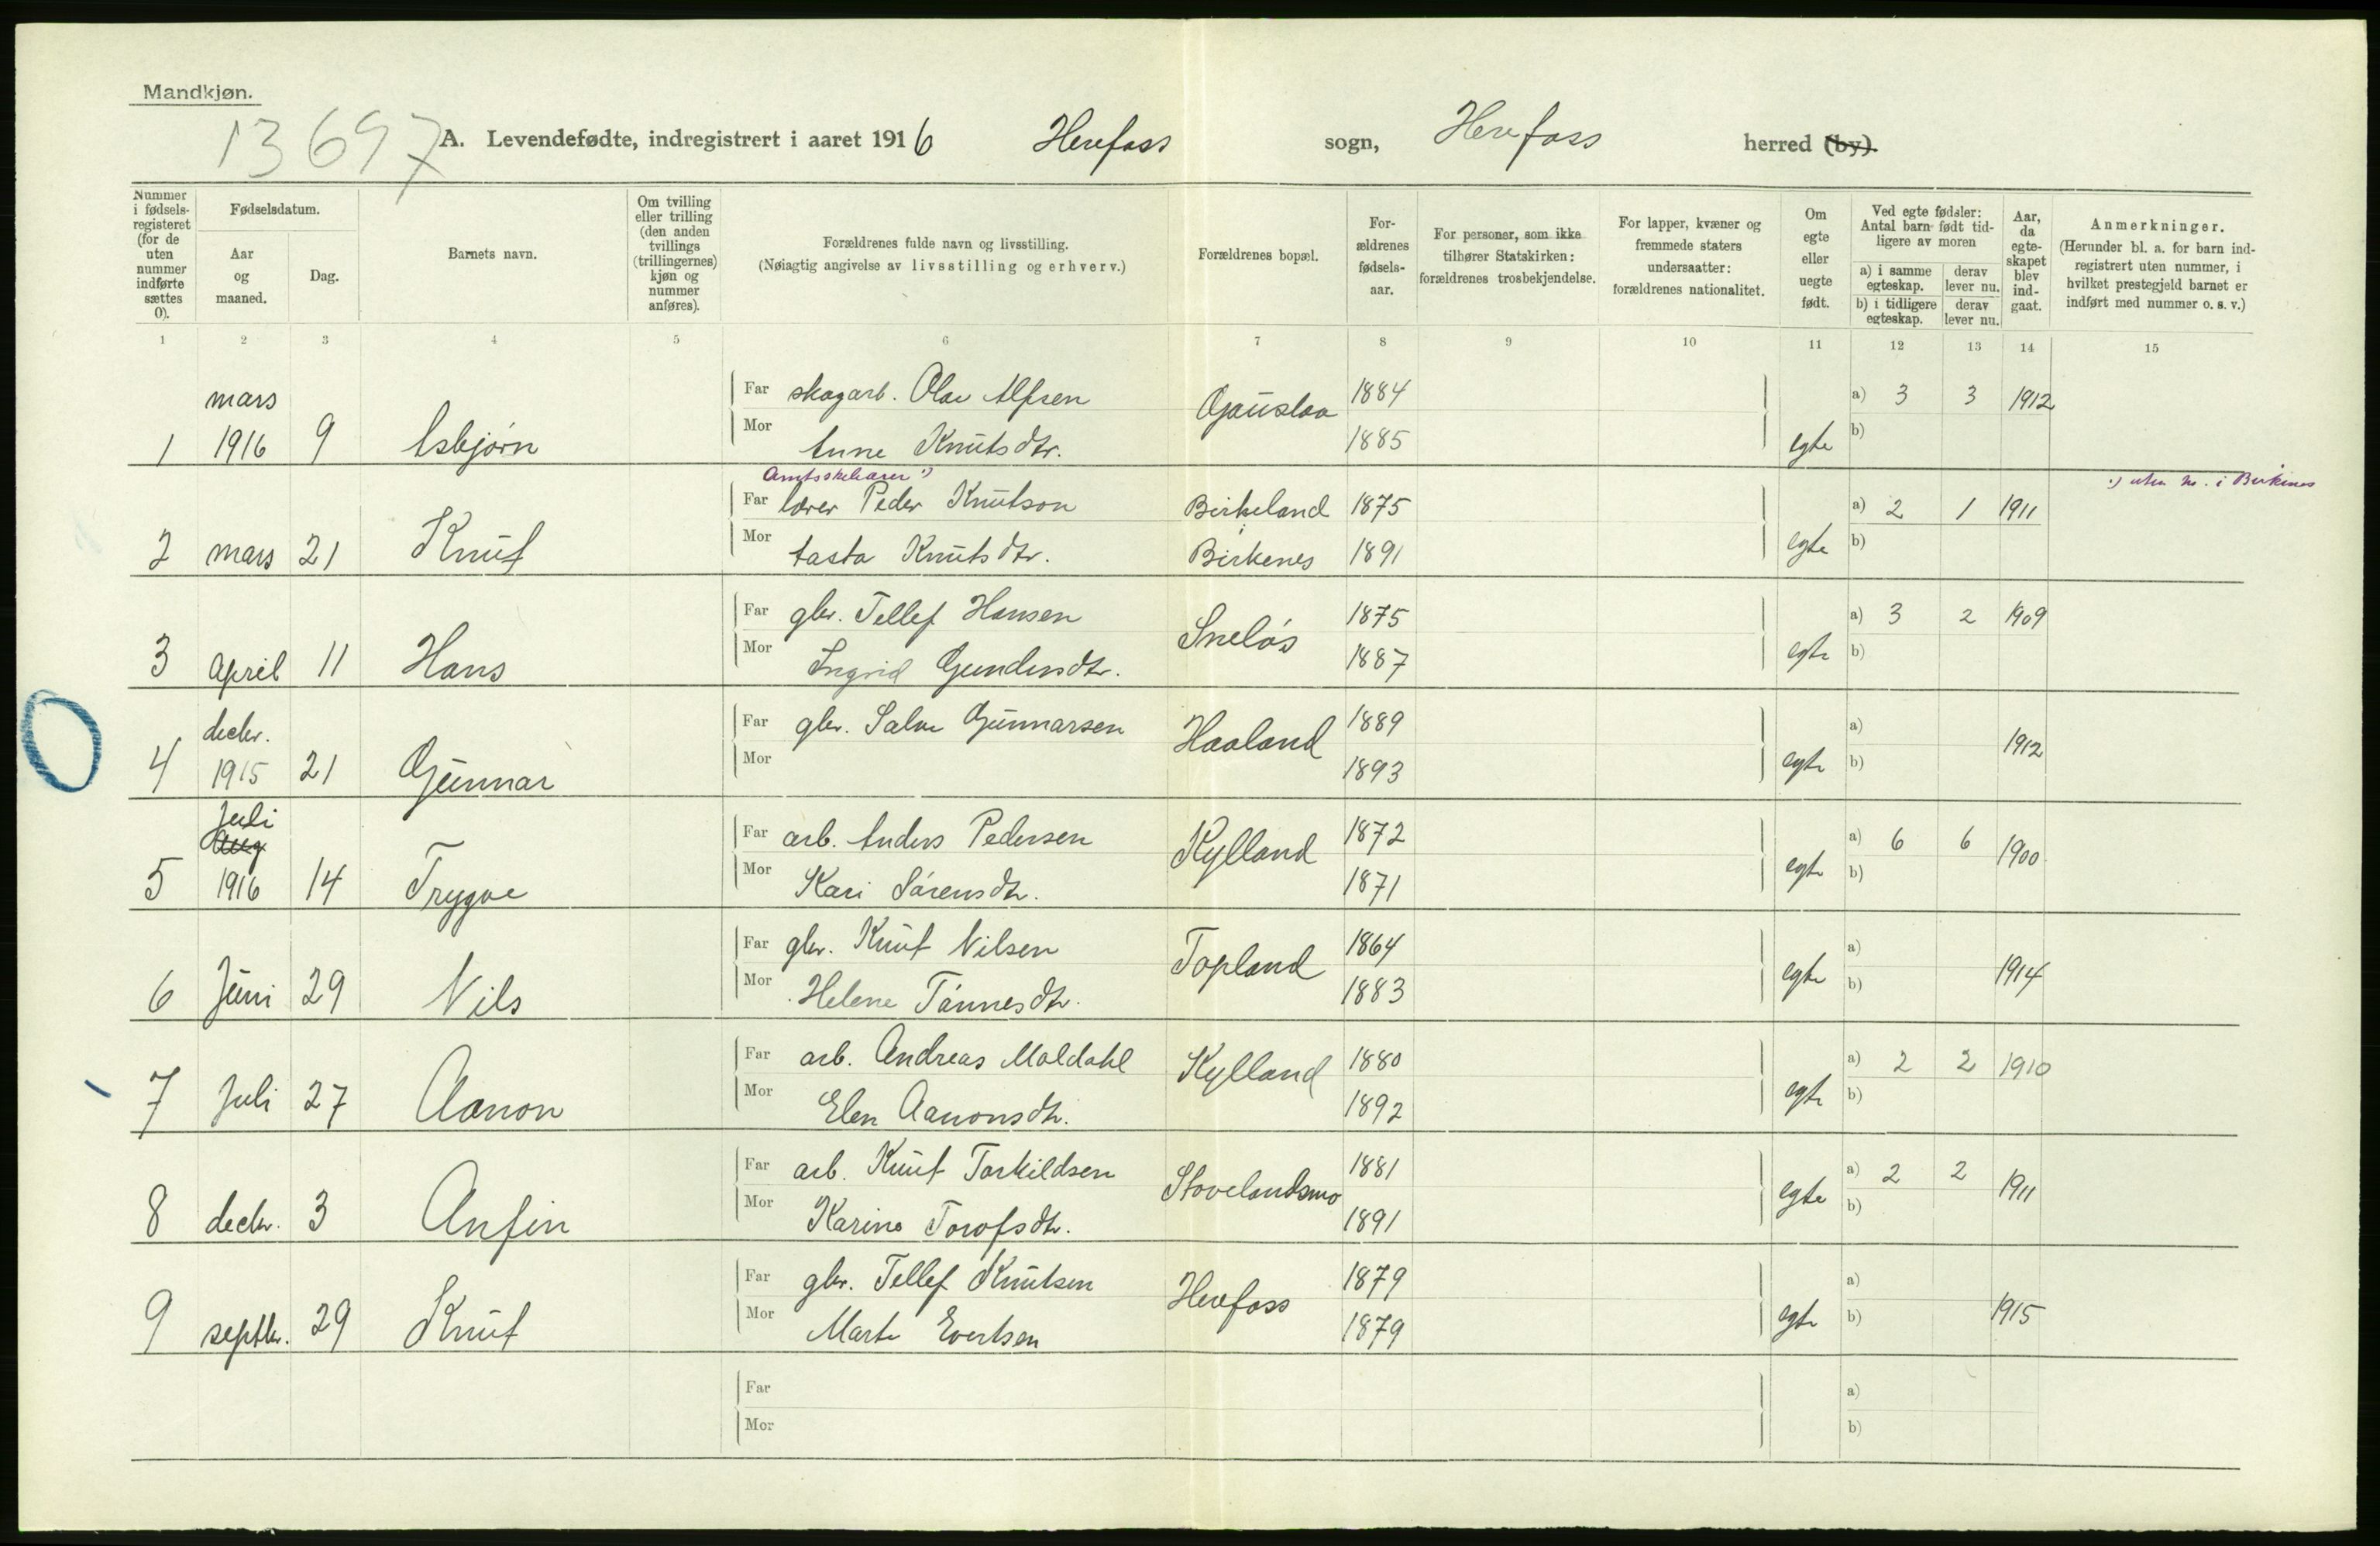 Mandkjøn.
13697
A. Levendefødte, indregistrert i aaret 1916 Herefoss sogn, Herefoss herred (by).
Nummer i fødselsregisteret (for de uten nummer indførte sættes 0).
Fødselsdatum.
Aar og maaned.
Dag.
Barnets navn.
Om tvilling eller trilling (den anden tvillings (trillingernes) kjøn og nummer anføres).
Forældrenes fulde navn og livsstilling.
(Nøiagtig angivelse av livsstilling og erhverv.)
Forældrenes bopæl.
Forældrenes fødselsaar.
For personer, som ikke tilhører Statskirken: forældrenes trosbekjendelse.
For lapper, kvæner og fremmede staters undersaatter: forældrenes nationalitet.
Om egte eller uegte født.
Ved egte fødsler: Antal barn født tidligere av moren
a) i samme egteskap.
derav lever nu.
b) i tidligere egteskap.
derav lever nu.
Aar, da egteskapet blev indgaat.
Anmerkninger.
(Herunder bl. a. for barn indregistrert uten nummer, i hvilket prestegjeld barnet er indført med nummer o. s. v.)
1 2 3 4 5 6 7 8 9 10 11 12 13 14 15
mars Far skogarb. Olav Alfsen Gauslaa 1884 a) 3 3 1912
1 1916 9 Asbjørn Mor Anne Knutsdtr. 1885 egte b)
Amtsskolelærer 1) 1) uten no. i Birkenes
Far lærer Peder Knutson Birkeland 1875 a) 2 1 1911
2 mars 21 Knut Mor Aasta Knutsdtr. Birkenes 1891 egte b)
Far gbr. Tellef Hansen Sneløs 1875 a) 3 2 1909
3 April 11 Hans Mor Ingrid Gundersdtr. 1887 egte b)
decbr. Far gbr. Salve Gunnarsen Haaland 1889 a) 1912
4 1915 21 Gunnar Mor 1893 egte b)
Juli
Aug Far arb. Anders Pedersen Kylland 1872 a) 6 6 1900
5 1916 14 Trygve Mor Kari Sørensdtr. 1871 egte b)
Far gbr. Knut Nilsen Topland 1864 a) 1914
6 Juni 29 Nils Mor Helene Tønnesdtr. 1883 egte b)
Far arb. Andreas Moldahl Kylland 1880 a) 2 2 1910
7 Juli 27 Aanon Mor Elen Aanonsdtr. 1892 egte b)
Far arb. Knut Torkildsen Stovelandsmo 1881 a) 2 2 1911
8 decbr. 3 Anfin Mor Karine Torofsdtr. 1891 egte b)
Far gbr. Tellef Knutsen Herefoss 1879 a) 1915
9 septbr. 29 Knut Mor Marte Evertsen 1879 egte b)
Far a)
Mor b)